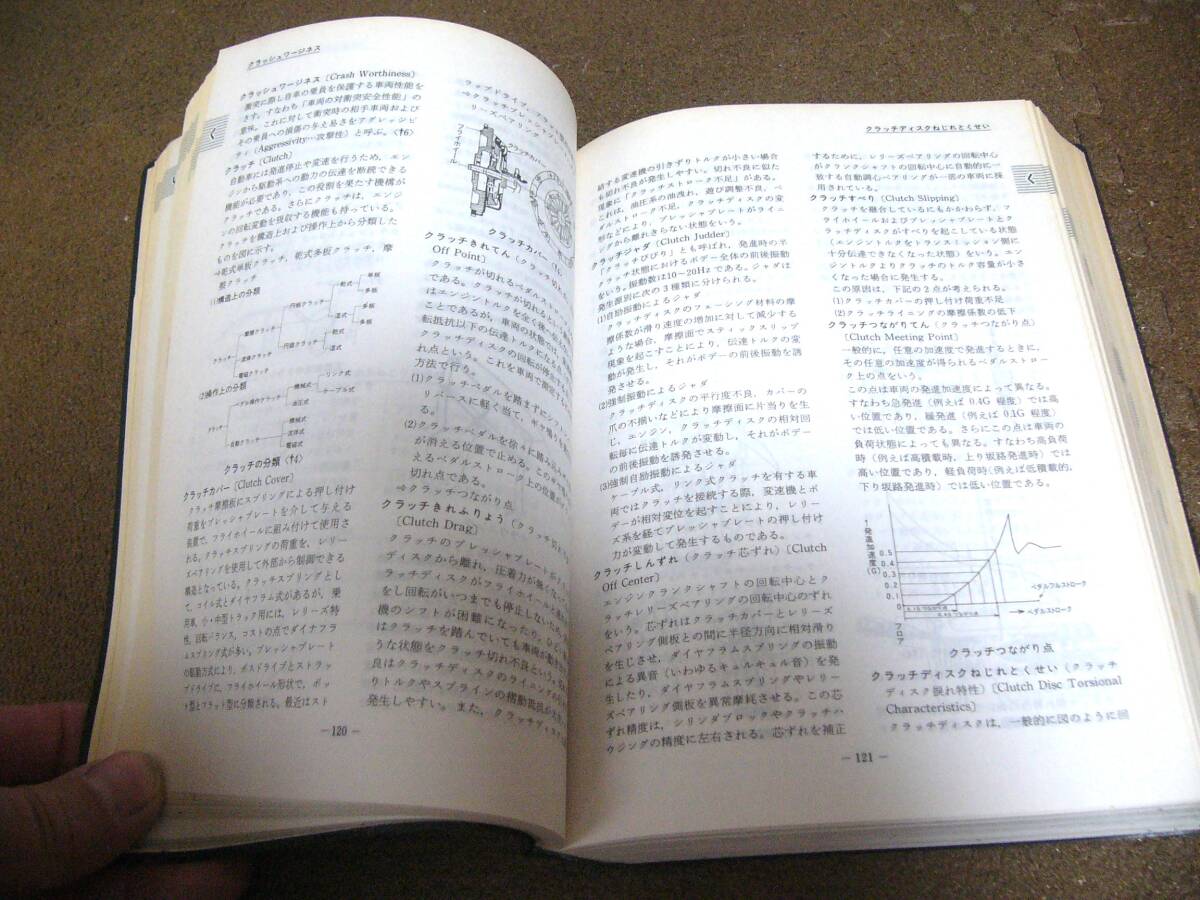 クラッシュワージネス
クラッシュワージネス〔Crash Worthiness〕
衝突に際し自車の乗員を保護する車両性能を
さす。すなわち「車両の対衝突安全性能」の
意味。これに対して衝突時の相手車両および
その乗員への損傷の与え易さをアグレッシビ
ティ(Aggressivity…攻撃性)と呼ぶ。
クラッチ〔Clutch〕
自動車には発進停止や変速を行うため、エン
ジンから駆動系への動力の伝達を断続できる
機能が必要であり、この役割を果たす機構が
クラッチである。さらにクラッチは、エンジ
ンの回転変動を吸収する機能も持っている。
クラッチを構造上および操作上から分類した
ものを図に示す。
⇒乾式単板クラッチ、乾式多板クラッチ、摩
擦クラッチ
(1)構造上の分類
クラッチ
摩擦クラッチ
流体クラッチ
電磁クラッチ
円板クラッチ
円錐クラッチ
乾式
湿式
乾式
湿式
単板
多板
多板
(2)操作上の分類
クラッチ
ペダル操作クラッチ
自動クラッチ
機械式
油圧式
リンク式
ケーブル式
機械式
流体式
電磁式
クラッチの分類
クラッチカバー〔Clutch Cover〕
クラッチ摩擦板にスプリングによる押し付け
荷重をプレッシャプレートを介して与える
装置で、フライホイールに組み付けて使用さ
れる。クラッチスプリングの荷重を、レリー
ズベアリングを使用して外部から制御できる
構造となっている。クラッチスプリングとし
て、コイル式とダイヤフラム式があるが、乗
用車、小・中型トラック用には、レリーズ特
性、回転バランス、コストの点でダイヤフラ
ムスプリング式が多い。プレッシャプレート
の駆動方式により、ボスドライブとストラッ
プドライブに、フライホイール形状で、ポッ
ト型とフラット型に分類される。最近はスト
ラップドライブ、フラ
⇒クラッチプレッシ
リーズベアリング
フライホイール
クラッチカバー
クラッチカバー
クラッチきれてん(クラッチ切れ
Off Point〕
クラッチが切れるペダルストロー
である。クラッチが切れるという
はエンジントルクを全く後へ伝え
ことであるが、車両の状態でク
転抵抗以下の伝達トルクになった
クラッチディスクの回転が停止す
れ点という。これを車両で測定す
方法で行う。
(1)クラッチペダルを踏まずにシフト
リバースに軽く当て、ギヤ鳴りを
る。
(2)クラッチペダルを徐々に踏み込み
が消える位置で止める。このギヤ
えるペダルストローク上の位置が
切れ点である。
⇒クラッチつながり点
クラッチきれふりょう(クラッチ切れ
〔Clutch Drag〕
クラッチのプレッシャプレートが
ディスクから離れ、圧着力が無くな
ラッチディスクがフライホイールと
をし回転がいつまでも停止しないため
機のシフトが困難になったり、ひどい
はクラッチを踏んでいても車両が動き
うな状態をクラッチ切れ不良という。
良はクラッチディスクのライニングの
りトルクやスプラインの摺動抵抗が大
発生しやすい。また、クラッチディスク
— 120 —
く
クラッチディスクねじれとくせい
結する変速機の引きずりトルクが小さい場合
も切れ不良が発生しやすい。切れ不良に似た
現象に「クラッチストローク不足」がある。
これは、油圧系の油洩れ、遊び調整不良、ペ
ダルストローク不足、クラッチディスクの変
形などにより、プレッシャプレートがライニ
ングから離れきらない状態をいう。
クラッチジャダ〔Clutch Judder〕
「クラッチびびり」とも呼ばれ、発進時の半
クラッチ状態におけるボデー全体の前後振動
をいう。振動数は10~20Hzである。ジャダは
発生源別に次の3種類に分けられる。
(1)自励振動によるジャダ
クラッチディスクのフェーシング材料の摩
擦係数が滑り速度の増加に対して減少する
ような場合、摩擦面でスティックスリップ
現象を起こすことにより、伝達トルクの変
動が発生し、それがボデーの前後振動を誘
発させる。
(2)強制振動によるジャダ
クラッチディスクの平行度不良、カバーの
爪の不揃いなどにより摩擦面に片当りを生
じ、エンジン、クラッチディスクの相対回
転毎に伝達トルクが変動し、それがボデー
の前後振動を誘発させる。
(3)強制自励振動によるジャダ
ケーブル式、リンク式クラッチを有する車
両ではクラッチを接続する際、変速機とボ
デーが相対変位を起すことにより、レリー
ズ系を経てプレッシャプレートの押し付け
力が変動して発生するものである。
クラッチしんずれ(クラッチ芯ずれ)〔Clutch
Off Center〕
エンジンクランクシャフトの回転中心とク
ラッチレリーズベアリングの回転中心のずれ
をいう。芯ずれはクラッチカバーとレリーズ
ベアリング側板との間に半径方向に相対滑り
を生じさせ、ダイヤフラムスプリングの振動
による異音(いわゆるキュルキュル音)を発
生したり、ダイヤフラムスプリングやレリー
ズベアリング側板を異常摩耗させる。この芯
ずれ精度は、シリンダブロックやクラッチハ
ウジングの精度に左右される。芯ずれを補正
するために、レリーズベアリングの回転中心
がクランクシャフトの回転中心に自動的に一
致する自動調心ベアリングが一部の車両に採
用されている。
クラッチすべり〔Clutch Slipping〕
クラッチを融合しているにもかかわらず、フ
ライホイールおよびプレッシャプレートとク
ラッチディスクがすべりを起こしている状態
(エンジントルクをトランスミッション側に
十分伝達できなくなった状態)をいう。エン
ジントルクよりクラッチのトルク容量が小さ
くなった場合に発生する。
この原因は、下記の2点が考えられる。
(1)クラッチカバーの押し付け荷重不足
(2)クラッチライニングの摩擦係数の低下
クラッチつながりてん(クラッチつながり点)
〔Clutch Meeting Point〕
一般的に、任意の加速度で発進するときに、
その任意の加速度が得られるペダルストロー
ク上の点をいう。
この点は車両の発進加速度によって異なる。
すなわち急発進(例えば 0.4G 程度)では高
い位置であり、緩発進(例えば 0.1G 程度)
では低い位置である。さらにこの点は車両の
負荷状態によっても異なる。すなわち高負荷
時(例えば高積載時、上り坂路発進時)では
高い位置であり、軽負荷時(例えば低積載時、
下り坂路発進時)では低い位置である。
↑発進加速度(G)
0.5
0.4
0.3
0.2
0.1
0
フロア
ペダルフルストローク
→ペダルストローク
クラッチつながり点
クラッチディスクねじれとくせい(クラッチ
ディスク捩れ特性)〔Clutch Disc Torsional
Characteristics〕
クラッチディスクは、一般的に図のように回
— 121 —
く